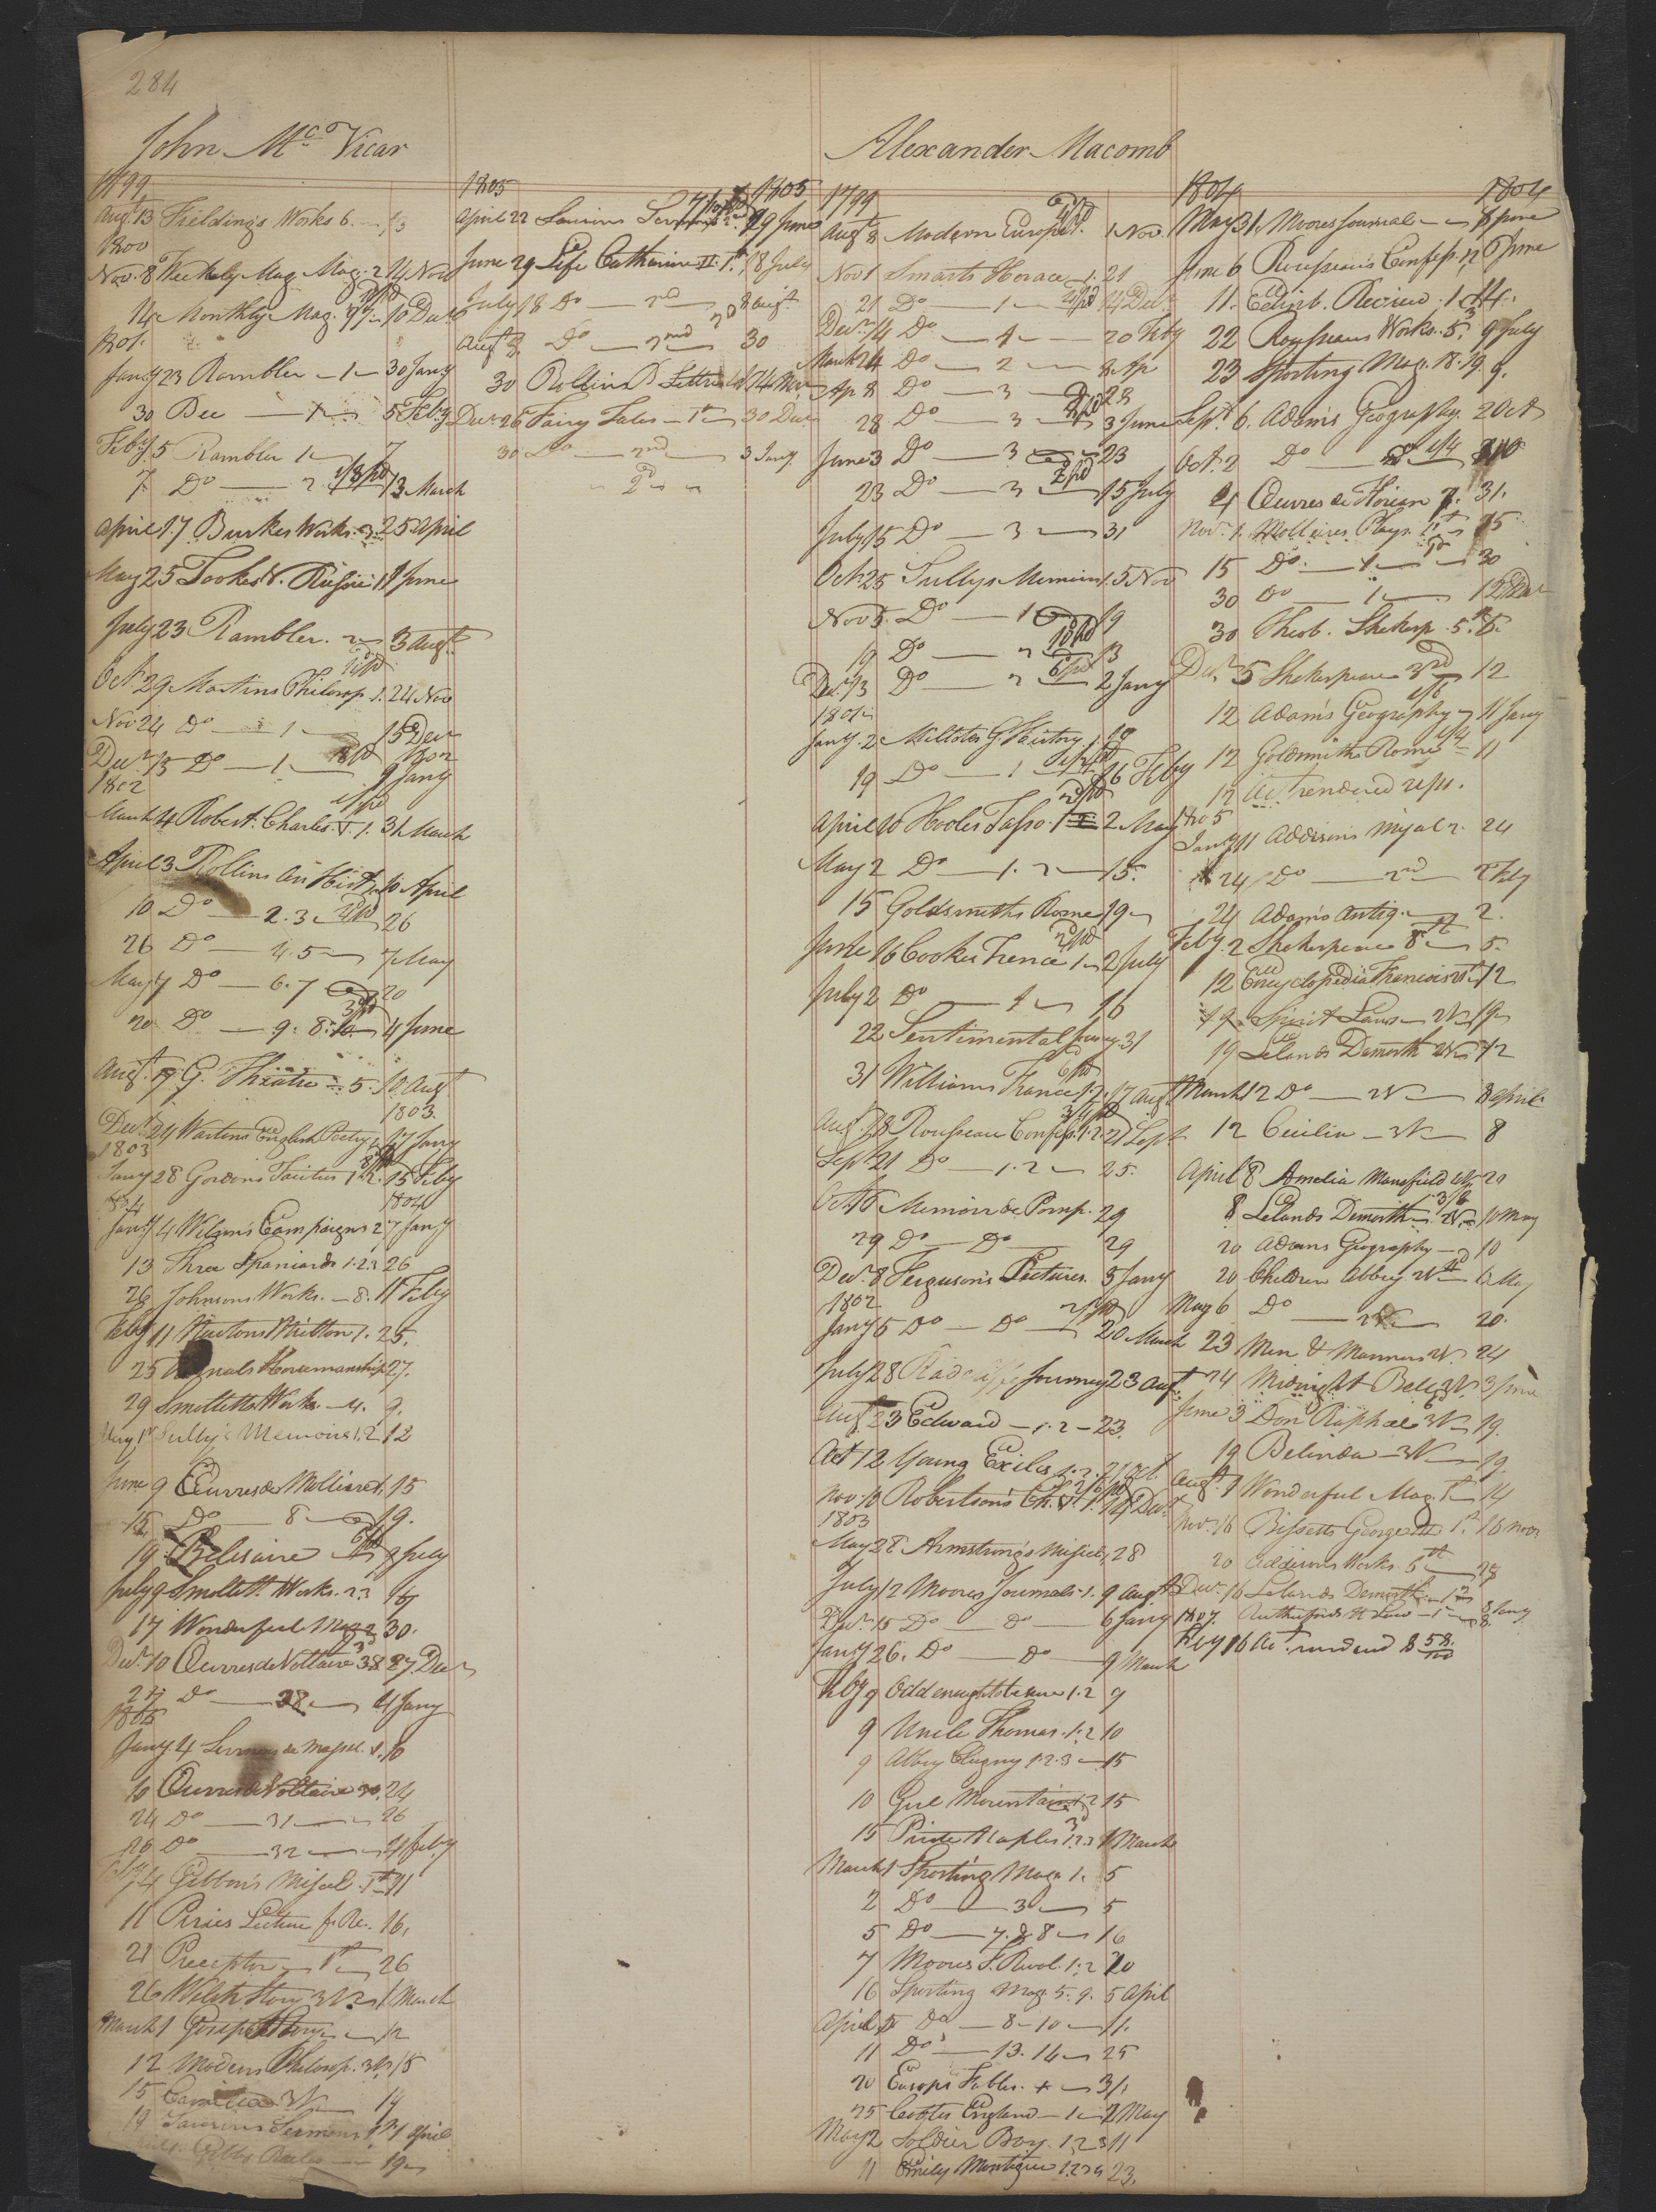 284
John McVicar
1799
Augt 13 Fieldings Works 6. 13
1800
Nov. 8 Weekly Mag. Mag. 2 14 Nov
14 Monthly Mag. 10 Decr
1801.
Jany 23 Rambler 1 30 Jany
30 Bee 1 5 Feby
Feby 5 Rambler 1 7
7 Do 2 13 March
April 17 Burkes Works. 3. 25 April
May 25 Tookes V. Russie. 1 11 June
July 23 Rambler. 2 3 Augt
Oct 29 Martins Philosop. 1. 24 Nov
Nov 24 Do 1 15 Decr
Decr 15 Do 1 9 Jany
1802
1802
March 4 Robert. Charles V. 1. 31 March
April 3 Rollins An Hist 10 April
10 Do 2. 3 26
26 Do 4. 5 7 May
May 7 Do 6. 7 20
20 Do 9. 8. 10 4 June
Augt 19 G. Theatre 5. 10 Augt
1803.
Decr 29 Wartons English Poetry 17 Jany
1803
Jany 28 Gordons Tacitus 1. 2. 15 Feby
1804
1804
Jany 4 Wilsons Campaigns 2 7 Jany
13 Three Spaniards 1. 2. 3 26
26 Johnsons Works. 8. 11 Feby
Feby 11 Wartons Milton 1. 25.
25 Horsemanship 27.
29 Smolletts Works 4. 9.
May 1st Sully's Memoirs 1. 2 12
June 9 Œuvres de Molliere 1. 15
15 Do 8 19.
19 Belisaire 9 July
July 9 Smollett Works. 2. 3 16
17 Wonderful Mag. 2 30.
Decr 10 Œuvres de Voltaire 38 27 Decr
27 Do 28 4 Jany
1805
Jany 4 Sermons de Massil. 1. 10
10 Œuvres de Voltaire 30. 24
24 Do 31 26
26 Do 32 4 Feby
Feby 4 Gibbon's Miscel. 1st 11
11 Piries Lecture fr. Re. 16.
21 Preceptor 1st 26
26 Welsh Story 3 V. 1 March
March 1 Gospel Story 12
12 Modern Philosop. 3 V. 15
15 Camilla 3 V. 19
19 Saurins Sermons 1st 1 April
Gibbs Rules 19
1805
1805
April 22 Saurins Sermons 29 June
June 29 Life Catharine II. 1st 18 July
July 18 Do 2nd 8 Augt
Augt 8 Do 2nd 30
30 Rollins B Lettres 1 14 Nov
Decr 26 Fairy Tales 1st 30 Decr
30 Do 2nd 3 Jany
Alexander Macomb
1799
Augt 8 Modern Europe 1 Nov
Nov 1 Smarts Horace 1. 21
21 Do 1 14 Decr
Decr 14 Do 1 20 Feby
March 24 Do 2 8 Ap
Ap 8 Do 3 28
28 Do 3 3 June
June 3 Do 3 23
23 Do 3 15 July
July 15 Do 3 31
Oct 25 Sullys Memoirs 1. 5 Nov
Nov 5. Do 1 19
19 Do 2 13
Decr 13 Do 2 2 Jany
1801
Jany. 2 Millots G History 1. 19
19 Do 1 26 Feby
April 10 Hooles Tasso. 1 2 May
May 2 Do 1. 2 15.
15 Goldsmiths Rome 19
June 16 Cookes Terence 1 2 July
July 2 Do 1 16
22 Sentimental Journey 31
31 Williams France 1. 2. 17 Augt
Aug. 18 Rousseau Confess. 1. 2. 21 Sept
Sept 21 Do 1. 2 25.
Oct. 16 Memoir de Pomp. 29
29 Do Do 29
Decr. 8 Ferguson's Lectures. 5 Jany
1802
Jany 5 Do Do 20 March
July 28 Radcliffe Journey 23 Augt
Augt 23 Edward 1. 2 23.
Oct 12 Young Exiles 1. 2. 21 Oct
Nov. 10 Robertson's Ch. V. 1. 14 Decr
1803
May 28 Armstrong's Miscel. 28
July 12 Moores Journals 1. 9 Augt
Decr 15 Do Do 6 Jany
Jany 26. Do Do 9 March
Feby 9 Odd enough to be sure 1. 2 9
9 Uncle Thomas. 1. 2 10
9 Abbey Clugny 1. 2. 3 15
10 Girl Mountains 1. 2 15
15 Pride Naples 1. 2. 3 1 March
March 1 Sporting Mag. 1. 5
2 Do 3 5
5 Do 7. & 8 16
7 Moores F. Revol. 1. 2 20
16 Sporting Mag. 5. 9. 5 April
April 5 Do 8 10 11.
11 Do 13. 14 25
20 Esops Fables. 3/1
25 Cootes England 1 2 May
May 2 Soldier Boy 1. 2. 3 11
11 Emily Montague 1. 2. 3. 4 23.
1804
1804
May 31 Moores Journal 8 June
June 6 Rousseau's Confess. 12 6 June
11. Edinb. Review. 1 14.
22 Rousseau Works. 5. 9 July
23 Sporting Mag. 18. 19 9.
Sept. 6. Adams Geography. 2 Oct
Oct. 2 Do
4 Œuvres de Florian 7. 31.
Nov. 1. Mollieres Plays. 1st 15
15 Do. 1 30
30 Do 1 12 Decr
30 Theob. Shaksp. 5th 5.
Decr 5 Shakespeare 3rd 12
12 Adam's Geography 11 Jany
12 Goldsmiths Rome 11
12 Act rendered
1805
Jany 11 Addisons Miscel 2. 24
24 Do 2nd 2 Feby
24 Adams Antiq. 2.
Feby. 2 Shakespeare 8th 5.
12 Encyclopedia Francois 12
19 Spirit Laws 2 V. 19
19 Lelands Demosth 2 V. 12
March 12 Do 2 V 8 April
12 Cecilia 3 V. 8
April 8 Amelia Mansfield 20
8 Lelands Demosth. 2 V. 10 May
20 Adams Geography 10
20 Children Abbey 2 V. 6 May
May 6 Do 2 V. 20.
23 Men & Manners 2 V. 24
24 Midnight Bell 2 V. 3 June
June 3 Don Raphael 3 V. 19.
19 Belinda 3 V. 19.
Augt. 9 Wonderful Mag. 1st 14
Novr. 16 Bissetts George III 1st 16 Novr
20 Addisons Works 5th 28
Decr. 16 Lelands Demosth. 1st 8 Jany
1807. Rutherfords N. Law 1 8.
Feby 16 Act rendered